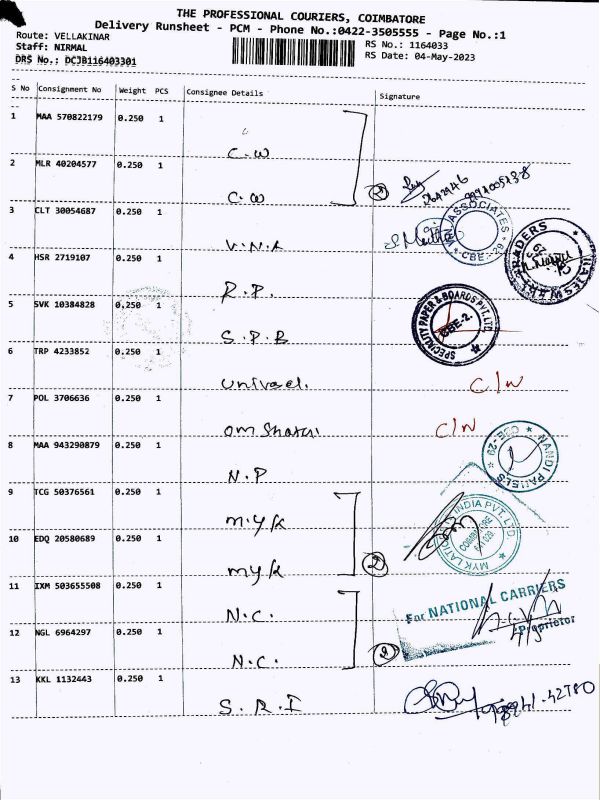 THE PROFESSIONAL COURIERS, COIMBATORE
Delivery Runsheet - PCM - Phone No.:0422-3505555 - Page No.:1
Route: VELLAKINAR
RS No.: 1164033
Staff: NIRMAL
RS Date: 04-May-2023
DRS No.: DCJB116403301
S No Consignment No Weight PCS Consignee Details Signature
1 MAA 570822179 0.250 1 C.W
2 MLR 40204577 0.250 1 C.W
3 CLT 30054687 0.250 1 V.N.A
4 HSR 2719107 0.250 1 R.P.
5 SVK 10384828 0.250 1 S.P.B
6 TRP 4233852 0.250 1 Univael. C/N
7 POL 3706636 0.250 1 Om Shakti C/N
8 MAA 943290879 0.250 1 N.P
9 TCG 50376561 0.250 1 M.Y.K
10 EDQ 20580689 0.250 1 MYK
2
11 IXM 503655508 0.250 1 N.C.
12 NGL 6964297 0.250 1 N.C.
2
13 KKL 1132443 0.250 1 S.R.I
ASSOCIATES
CBE-29
TRADERS
SPECIALITY PAPER & BOARDS PVT.LTD.
CBE-2.
NANDI PANELS
CBE-29
INDIA PVT. LTD.
COIMBATORE
For NATIONAL CARRIERS
Proprietor